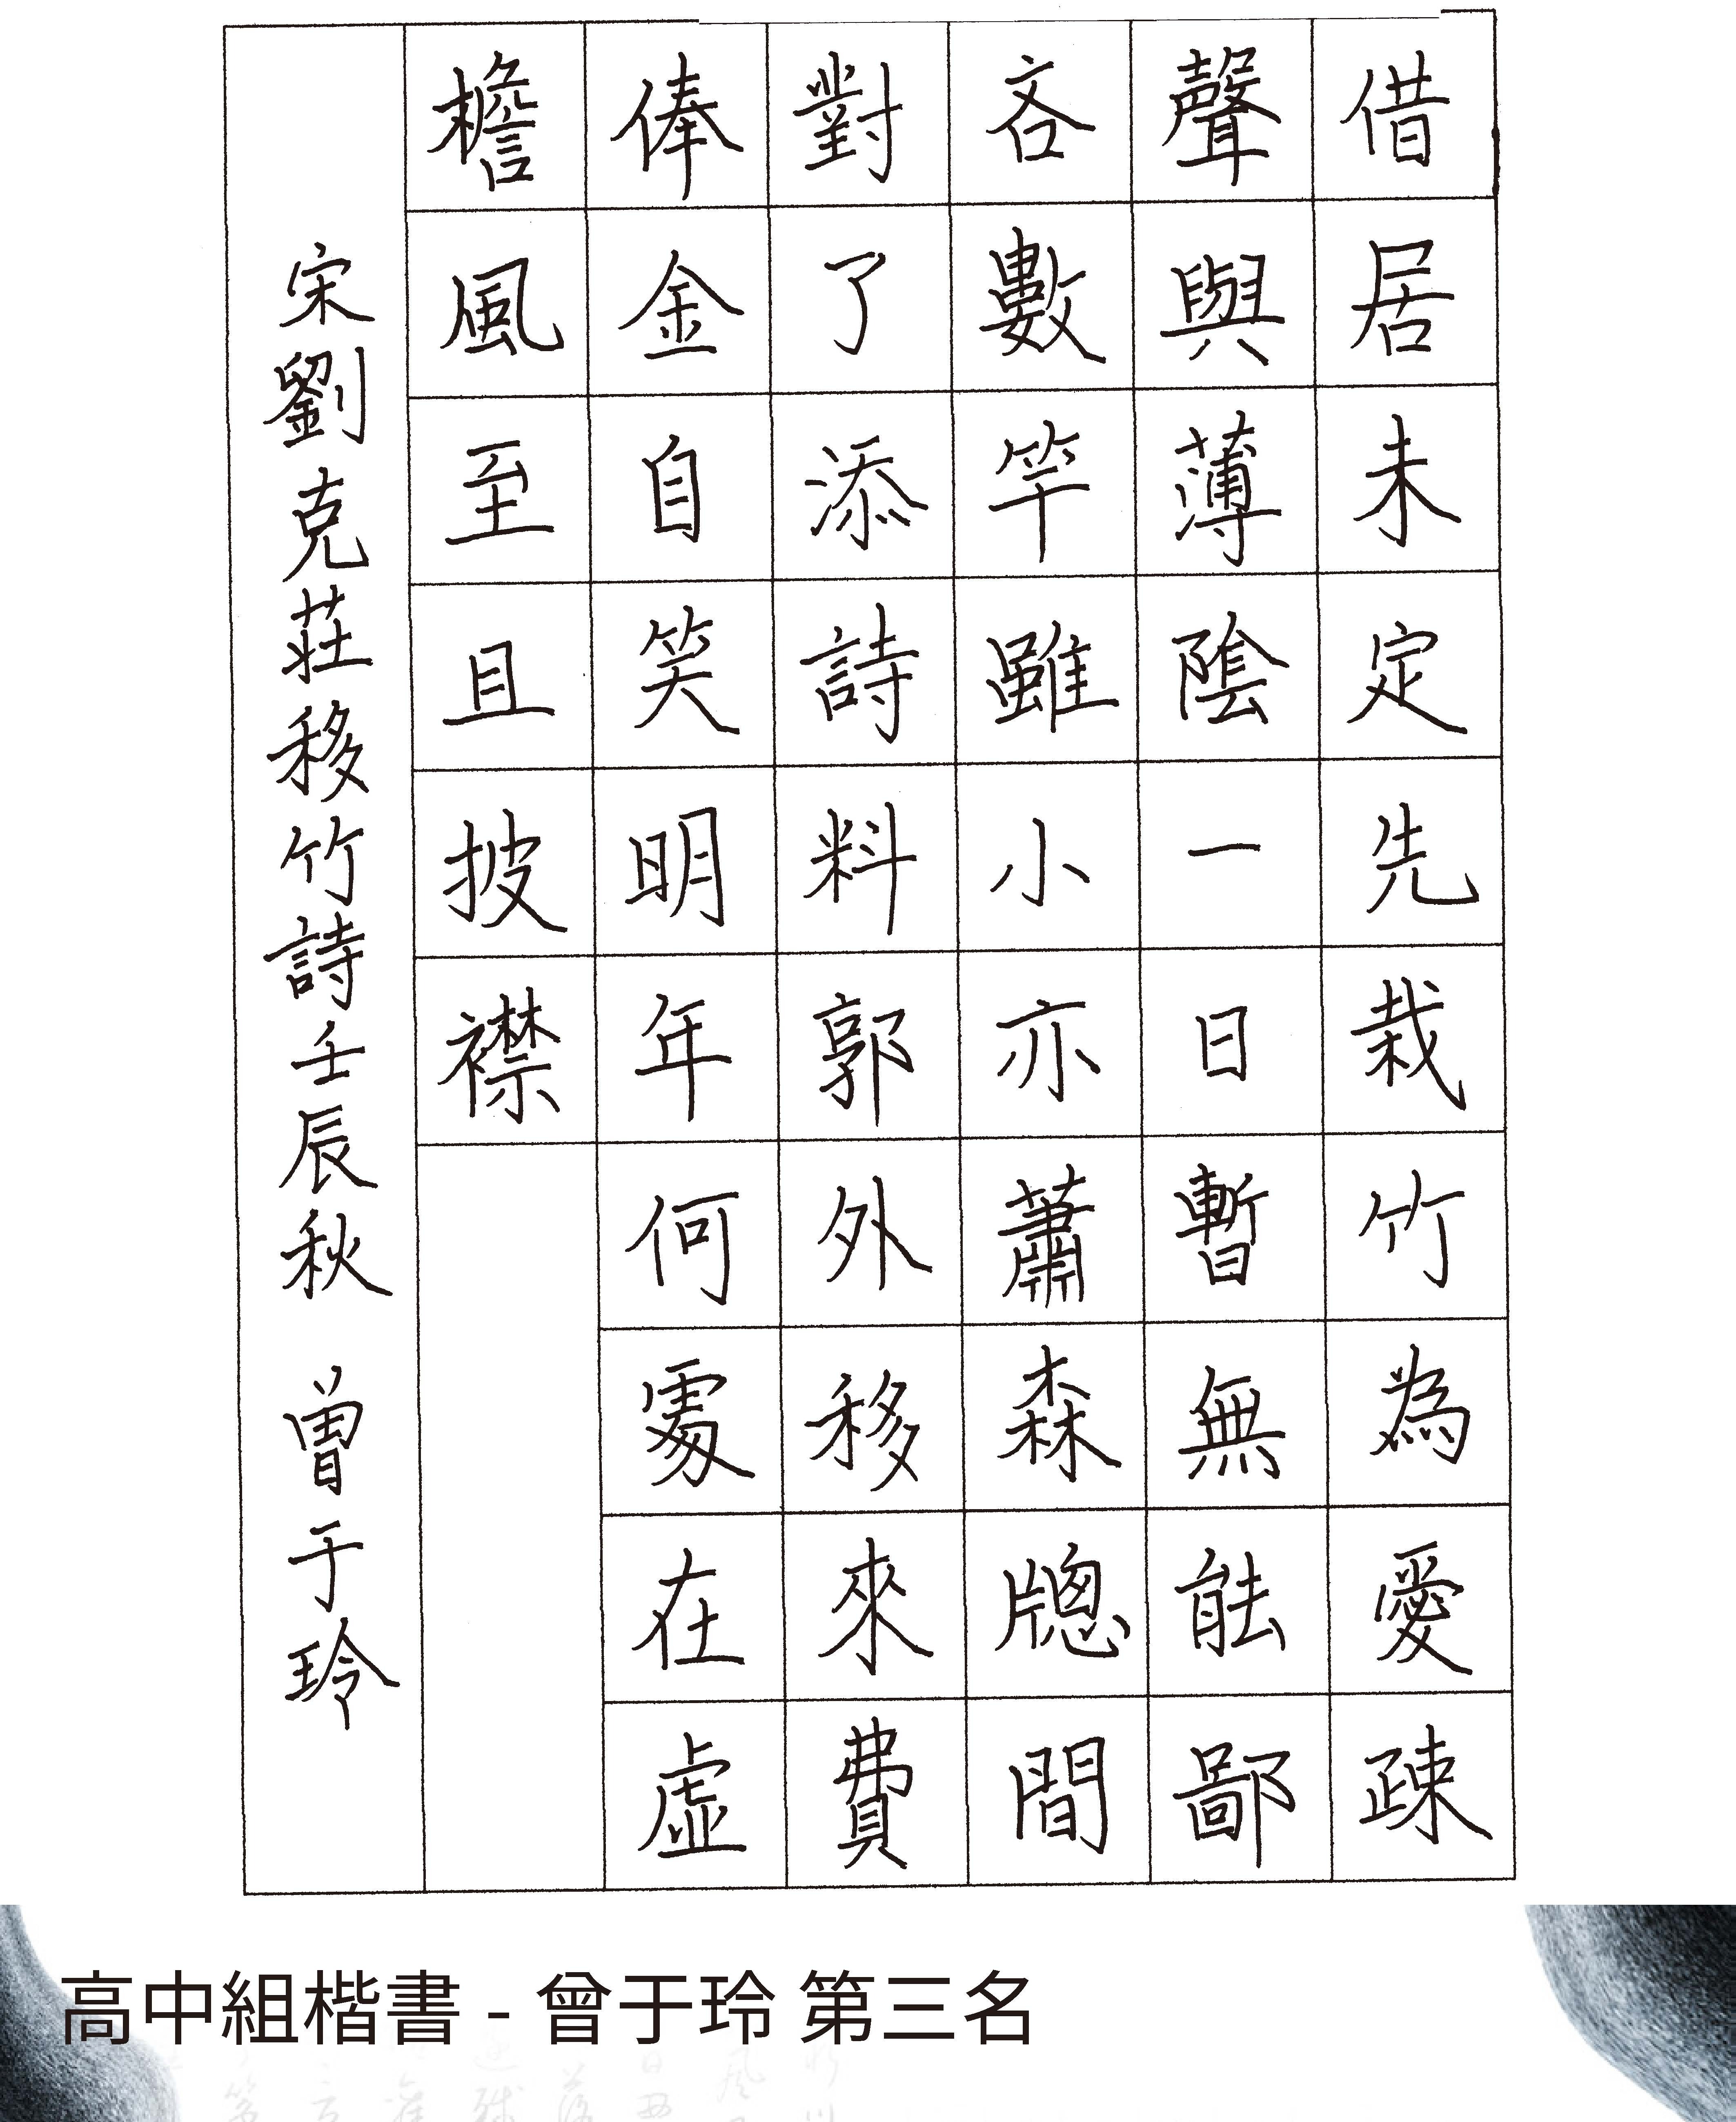 借居未定先栽竹為愛疎
聲與薄陰一日暫無能鄙
吝數竿雖小亦蕭森牕間
對了添詩料郭外移來費
俸金自笑明年何處在虛
檐風至且披襟
宋劉克莊移竹詩壬辰秋 曾于玲
高中組楷書 - 曾于玲 第三名